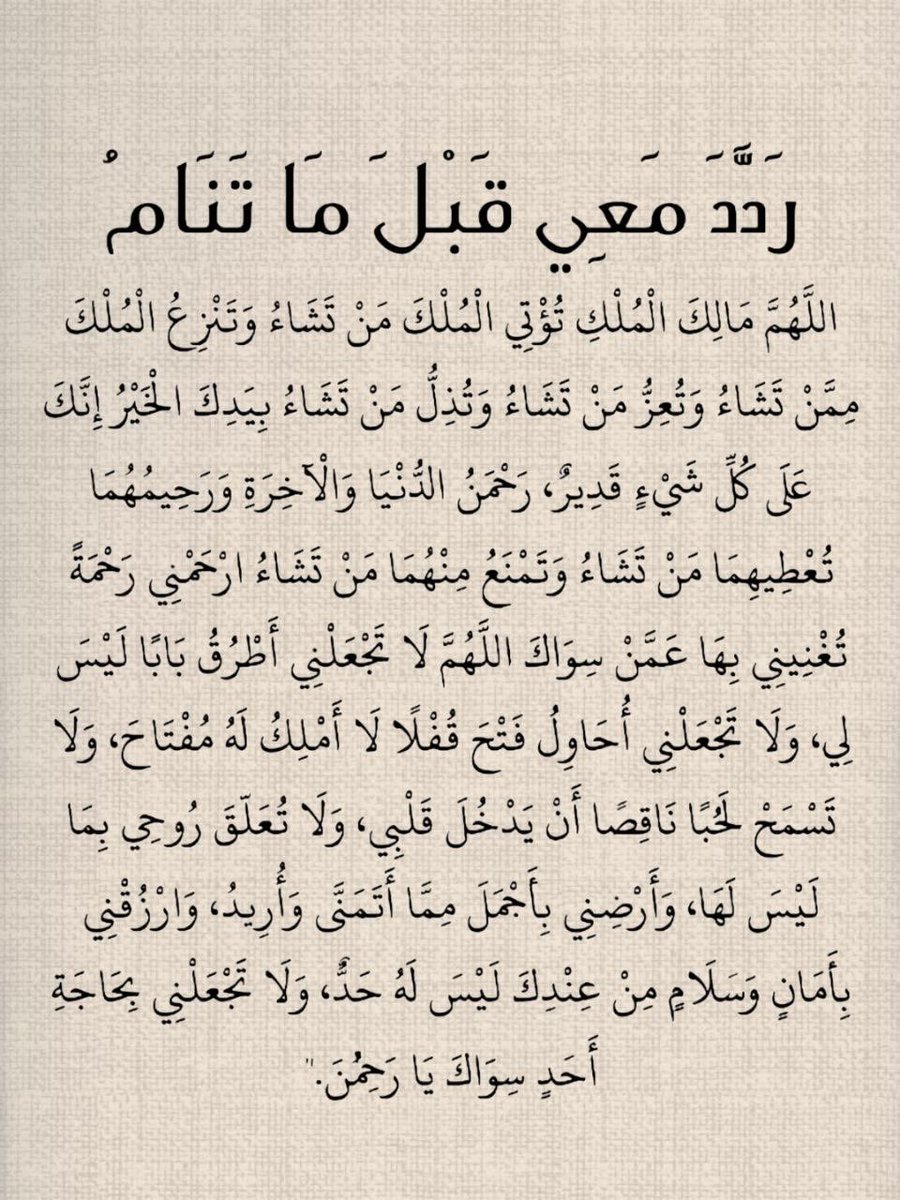 رَدَّدَ مَعِي قَبْلَ مَا تَنَامُ
اللَّهُمَّ مَالِكَ الْمُلْكِ تُؤْتِي الْمُلْكَ مَنْ تَشَاءُ وَتَنْزِعُ الْمُلْكَ
مِمَّنْ تَشَاءُ وَتُعِزُّ مَنْ تَشَاءُ وَتُذِلُّ مَنْ تَشَاءُ بِيَدِكَ الْخَيْرُ إِنَّكَ
عَلَى كُلِّ شَيْءٍ قَدِيرٌ، رَحْمَنُ الدُّنْيَا وَالْآخِرَةِ وَرَحِيمُهُمَا
تُعْطِيهِمَا مَنْ تَشَاءُ وَتَمْنَعُ مِنْهُمَا مَنْ تَشَاءُ ارْحَمْنِي رَحْمَةً
تُغْنِينِي بِهَا عَمَّنْ سِوَاكَ اللَّهُمَّ لَا تَجْعَلْنِي أَطْرُقُ بَابًا لَيْسَ
لِي، وَلَا تَجْعَلْنِي أُحَاوِلُ فَتْحَ قُفْلًا لَا أَمْلِكُ لَهُ مُفْتَاحَ، وَلَا
تَسْمَحْ لَحُبًا نَاقِصًا أَنْ يَدْخُلَ قَلْبِي، وَلَا تُعَلّقَ رُوحِي بِمَا
لَيْسَ لَهَا، وَأَرْضِنِي بِأَجْمَلَ مِمَّا أَتَمَنَّى وَأُرِيدُ، وَارْزُقْنِي
بِأَمَانٍ وَسَلَامٍ مِنْ عِنْدِكَ لَيْسَ لَهُ حَدٌّ، وَلَا تَجْعَلْنِي بِحَاجَةِ
أَحَدٍ سِوَاكَ يَا رَحِمُنَ."